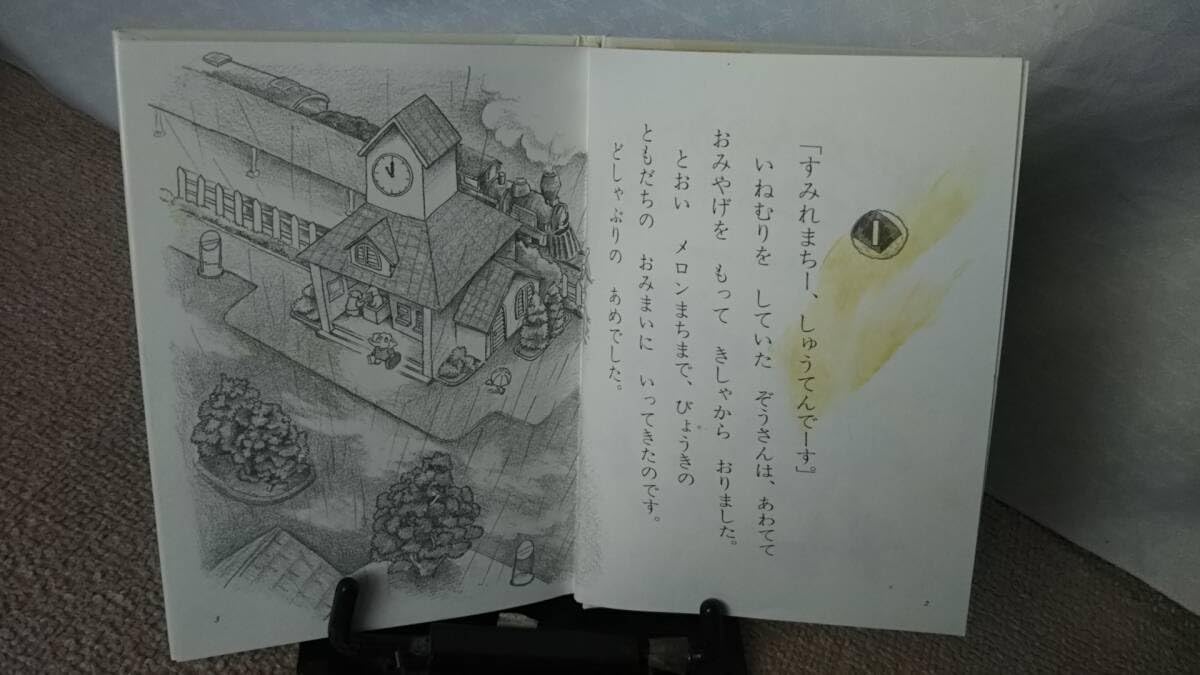 1
「すみれまちー、しゅうてんでーす。」
いねむりを していた ぞうさんは、あわてて
おみやげを もって きしゃから おりました。
とおい メロンまちまで、びょうきの
ともだちの おみまいに いってきたのです。
どしゃぶりの あめでした。
2
3